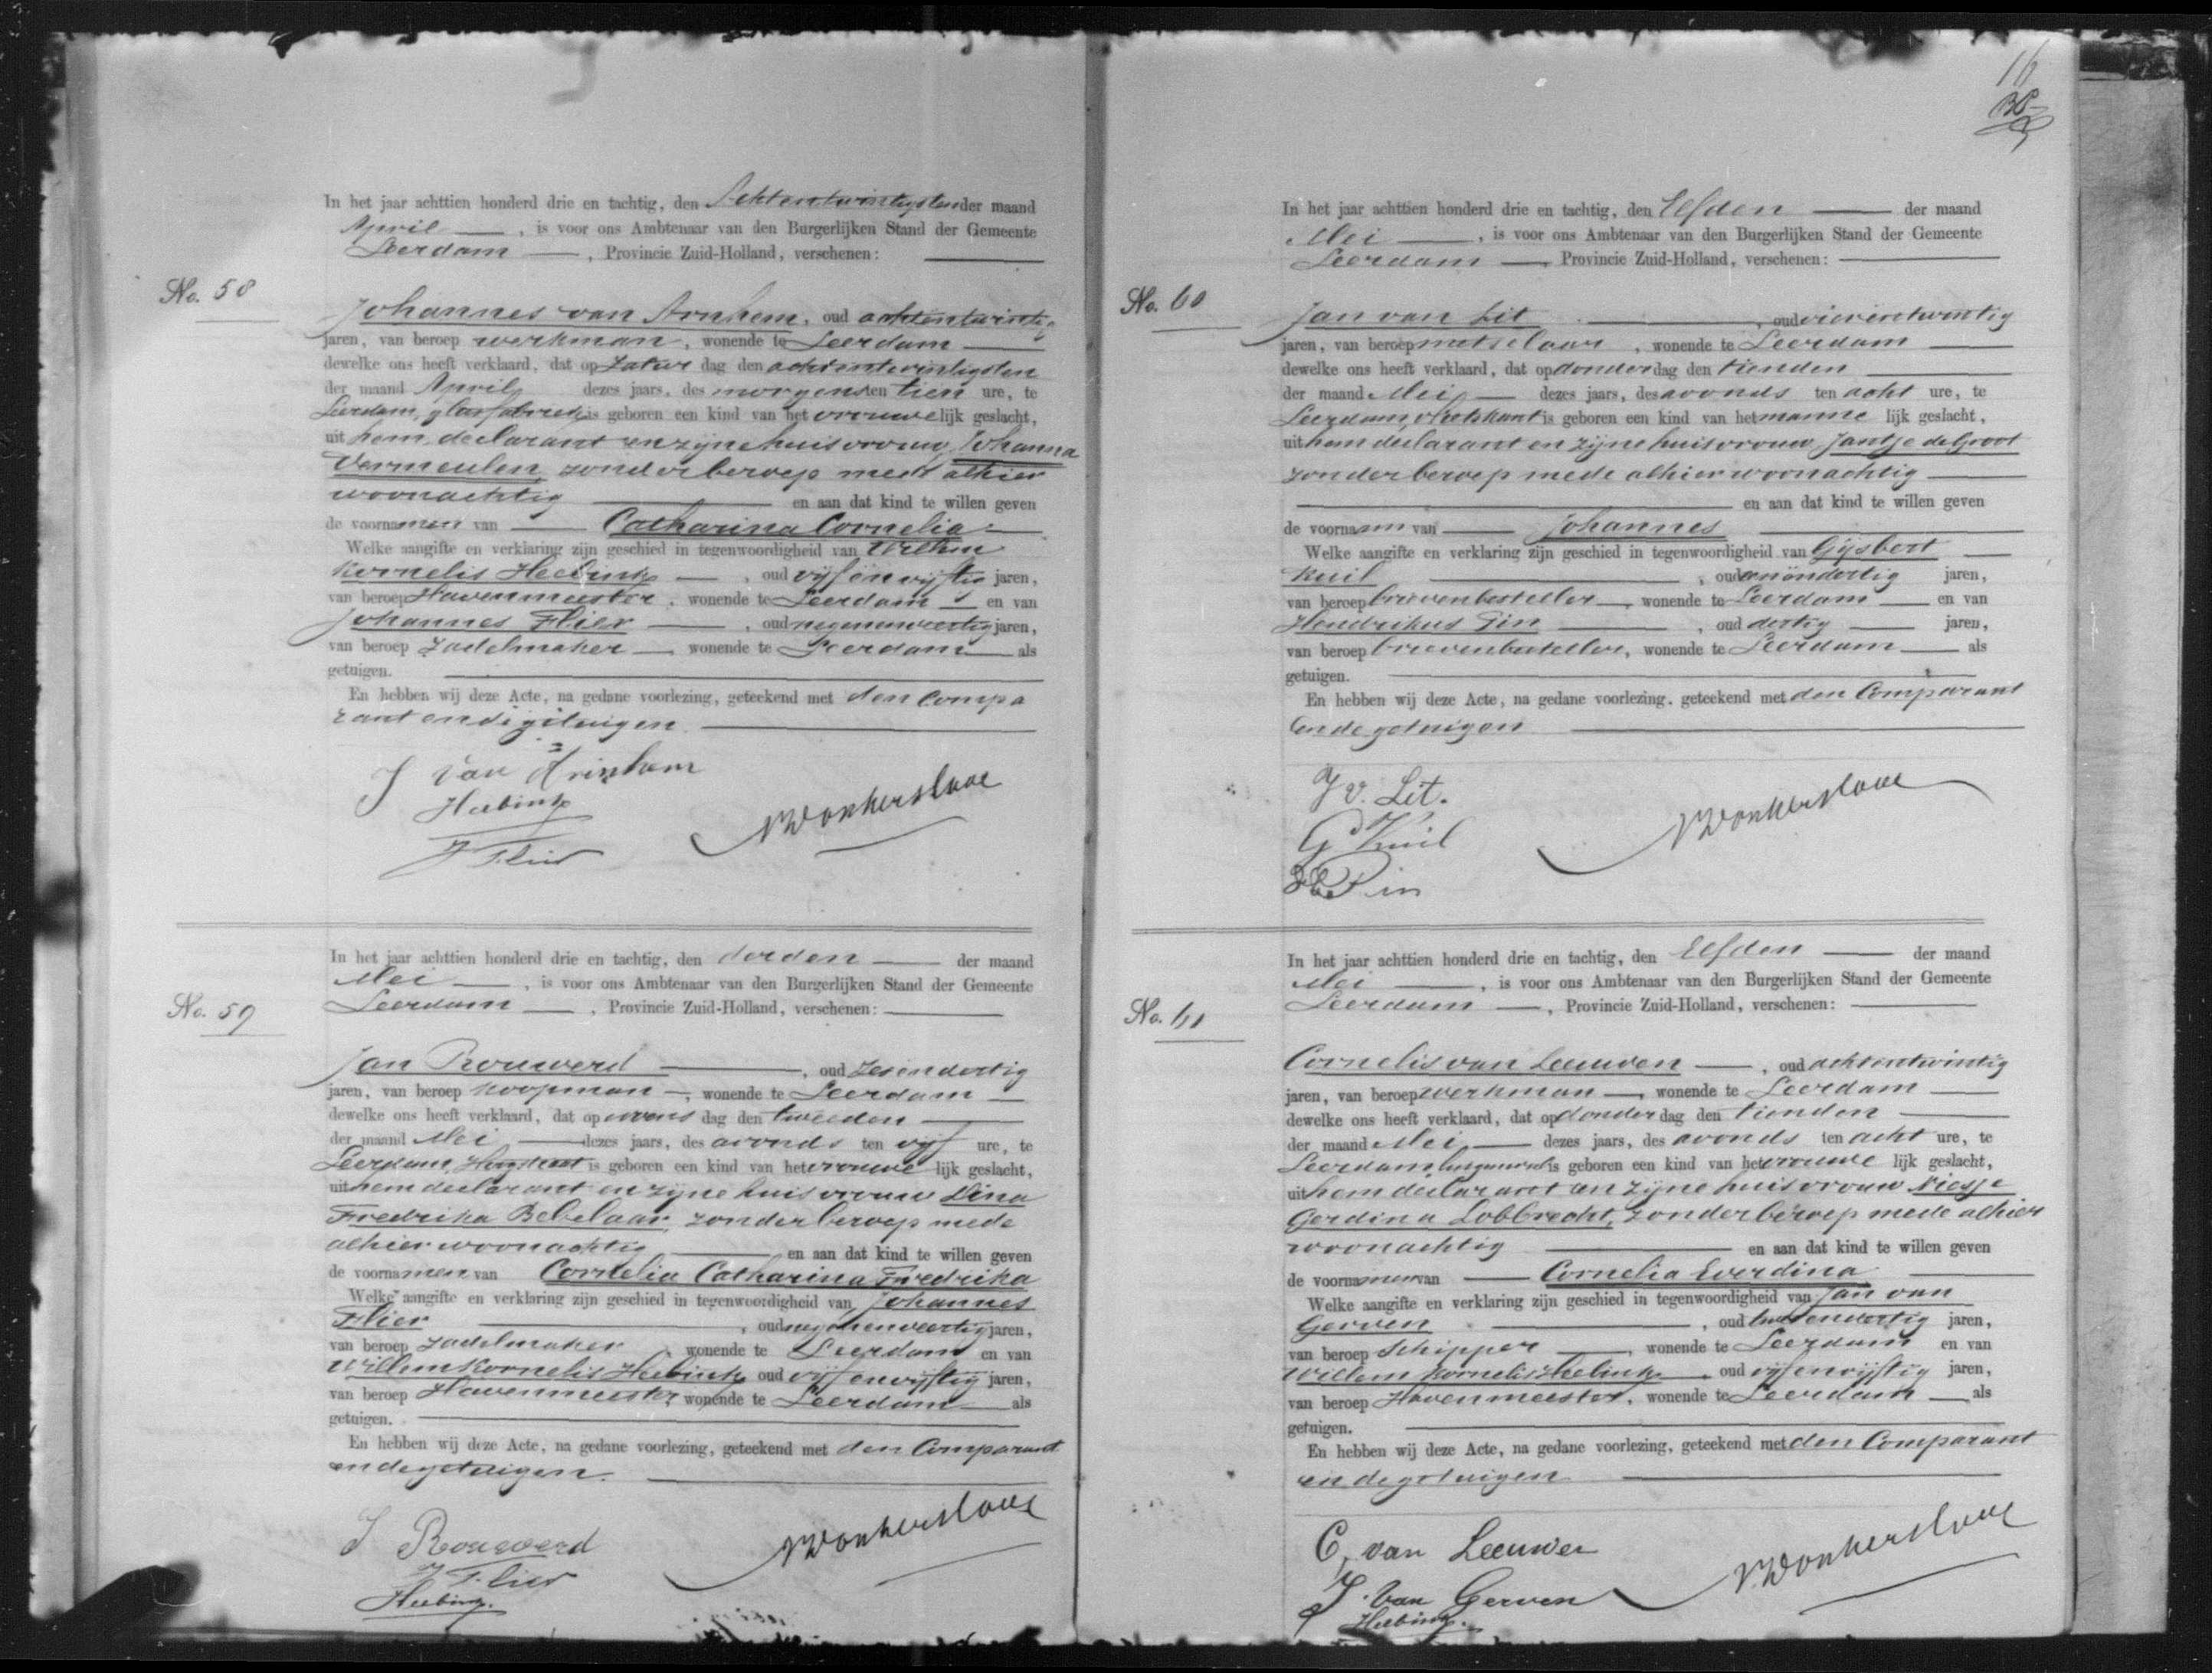 No. 58
In het jaar achttien honderd drie en tachtig, den Achtentwintigsten der maand
April, is voor ons Ambtenaar van den Burgerlijken Stand der Gemeente
Leerdam, Provincie Zuid-Holland, verschenen:
Johannes van Arnhem, oud achtentwintig
jaren, van beroep werkman, wonende te Leerdam
dewelke ons heeft verklaard, dat op Zatur dag den achtentwintigsten
der maand April dezes jaars, des morgens ten tien ure, te
Leerdam, glasfabriek is geboren een kind van het vrouwelijk geslacht,
uit hem declarant en zijne huisvrouw Johanna
Vermeulen, zonder beroep mede alhier
woonachtig en aan dat kind te willen geven
de voornamen van Catharina Cornelia
Welke aangifte en verklaring zijn geschied in tegenwoordigheid van Willem
Kornelis Heebink, oud vijf en vijftig jaren,
van beroep Havenmeester, wonende te Leerdam en van
Johannes Flier, oud negenenveertig jaren,
van beroep Zadelmaker wonende te Leerdam als
getuigen.
En hebben wij deze Acte, na gedane voorlezing, geteekend met den Compa
rant en de getuigen.
J van Arinhem
Heebink
J Flier
No. 59
In het jaar achttien honderd drie en tachtig, den derden der maand
Mei, is voor ons Ambtenaar van den Burgerlijken Stand der Gemeente
Leerdam, Provincie Zuid-Holland, verschenen:
Jan Rouwerd, oud zesendertig
jaren, van beroep koopman, wonende te Leerdam
dewelke ons heeft verklaard, dat op woens dag den tweeden
der maand Mei dezes jaars, des avonds ten vijf ure, te
Leerdam, Hoogstraat is geboren een kind van het vrouwe lijk geslacht,
uit hem declarant en zijne huisvrouw Dina
Fredrika Bebelaar, zonder beroep mede
alhier woonachtig en aan dat kind te willen geven
de voornamen van Cornelia Catharina Fredrika
Welke aangifte en verklaring zijn geschied in tegenwoordigheid van Johannes
Flier, oud negenenveertig jaren,
van beroep zadelmaker, wonende te Leerdam en van
Willem Kornelis Heebink oud vijf en vijftig jaren,
van beroep Havenmeester wonende te Leerdam als
getuigen.
En hebben wij deze Acte, na gedane voorlezing, geteekend met den Comparant
en de getuigen.
J Rouwerd
J Flier
Heebink.
16
No. 60
In het jaar achttien honderd drie en tachtig, den Elfden der maand
Mei, is voor ons Ambtenaar van den Burgerlijken Stand der Gemeente
Leerdam, Provincie Zuid-Holland, verschenen:
Jan van Lit, oud vierentwintig
jaren, van beroep metselaar, wonende te Leerdam
dewelke ons heeft verklaard, dat op donderdag den tienden
der maand Mei dezes jaars, des avonds ten acht ure, te
Leerdam, is geboren een kind van het manne lijk geslacht,
uit hem declarant en zijne huisvrouw Jantje de Groot
zonder beroep mede alhier woonachtig
en aan dat kind te willen geven
de voornaam van Johannes
Welke aangifte en verklaring zijn geschied in tegenwoordigheid van Gijsbert
Kuil, oud jaren,
van beroep brievenbesteller, wonende te Leerdam en van
Hendrikus Pin, oud dertig jaren,
van beroep brievenbesteller, wonende te Leerdam als
getuigen.
En hebben wij deze Acte, na gedane voorlezing, geteekend met den Comparant
en de getuigen
J v. Lit.
G Kuil
H Pin
No. 61
In het jaar achttien honderd drie en tachtig, den Elfden der maand
Mei, is voor ons Ambtenaar van den Burgerlijken Stand der Gemeente
Leerdam, Provincie Zuid-Holland, verschenen:
Cornelis van Leeuwen, oud achtentwintig
jaren, van beroep werkman, wonende te Leerdam
dewelke ons heeft verklaard, dat op donderdag den tienden
der maand Mei dezes jaars, des avonds ten acht ure, te
Leerdam, is geboren een kind van het vrouwe lijk geslacht,
uit hem declarant en zijne huisvrouw Niesje
Gerdina Lobbrecht, zonder beroep mede alhier
woonachtig en aan dat kind te willen geven
de voornamen van Cornelia Everdina
Welke aangifte en verklaring zijn geschied in tegenwoordigheid van Jan van
Gerven, oud tweeendertig jaren,
van beroep Schipper, wonende te Leerdam en van
Willem Kornelis Heebink, oud vijfenvijftig jaren,
van beroep Havenmeester, wonende te Leerdam als
getuigen.
En hebben wij deze Acte, na gedane voorlezing, geteekend met den Comparant
en de getuigen
C, van Leeuwen
J. van Gerven
Heebink.